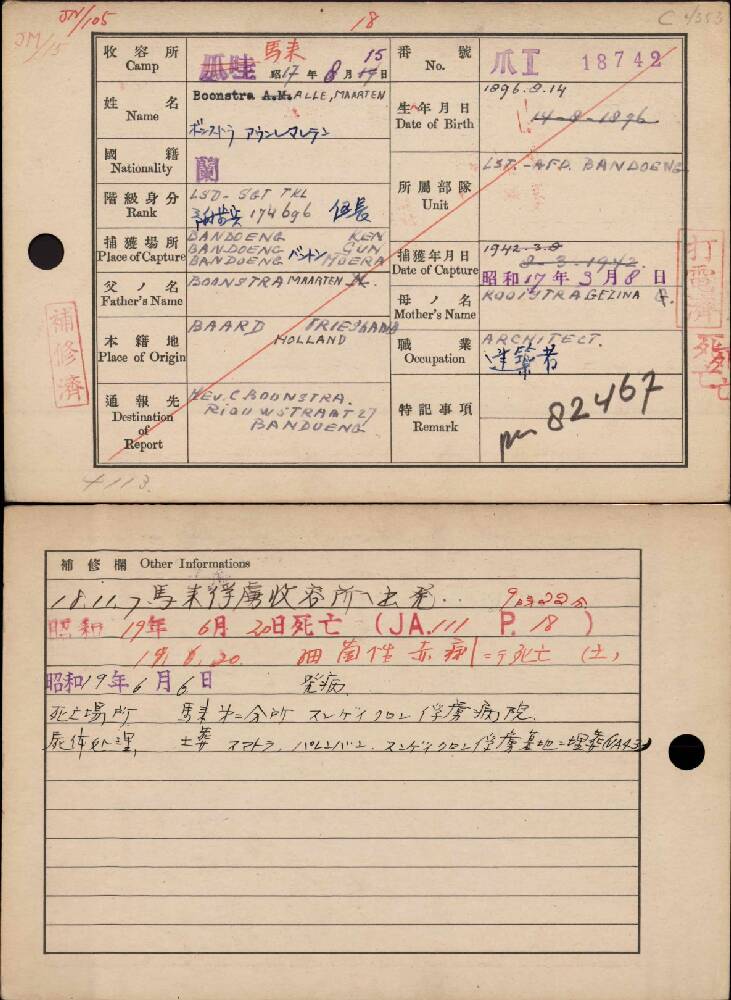 JN/105
18
C 4/353
JM/15
收容所 Camp
瓜哇 馬来 昭17年8月15日
番號 No.
爪I 18742
姓名 Name
Boonstra A.M. ALLE, MAARTEN
ボンストラ アウンレ マレテン
生年月日 Date of Birth
1896.8.14
14-8-1896
國籍 Nationality
蘭
所屬部隊 Unit
LST.-AFD. BANDOENG
階級身分 Rank
LSD-SGT TKL
174696 伍長
捕獲場所 Place of Capture
BANDOENG KEN
BANDOENG GUN
BANDOENG バンドン MOERA
捕獲年月日 Date of Capture
1942.3.8
8-3-1942.
昭和17年3月8日
父ノ名 Father's Name
BOONSTRA MAARTEN
母ノ名 Mother's Name
KOOISTRA GEZINA
本籍地 Place of Origin
BAARD FRIESLAND
HOLLAND
職業 Occupation
ARCHITECT.
建築者
通報先 Destination of Report
MEV. C. BOONSTRA.
RIOUWSTRAAT 27
BANDOENG
特記事項 Remark
82467
補修濟
打電濟
死亡
4113.
補修欄 Other Informations
18.11.7 馬来俘虜收容所ヘ出発..
9時22分
昭和19年6月20日死亡 (JA.111 P.18)
19.6.20. 細菌性赤痢ニテ死亡 (土)
昭和19年6月6日 発病
死亡場所 馬来第二分所 スンゲイクロン俘虜病院.
屍体処理. 土葬 スマトラ. パレンバン. スンゲイクロン俘虜墓地ニ埋葬